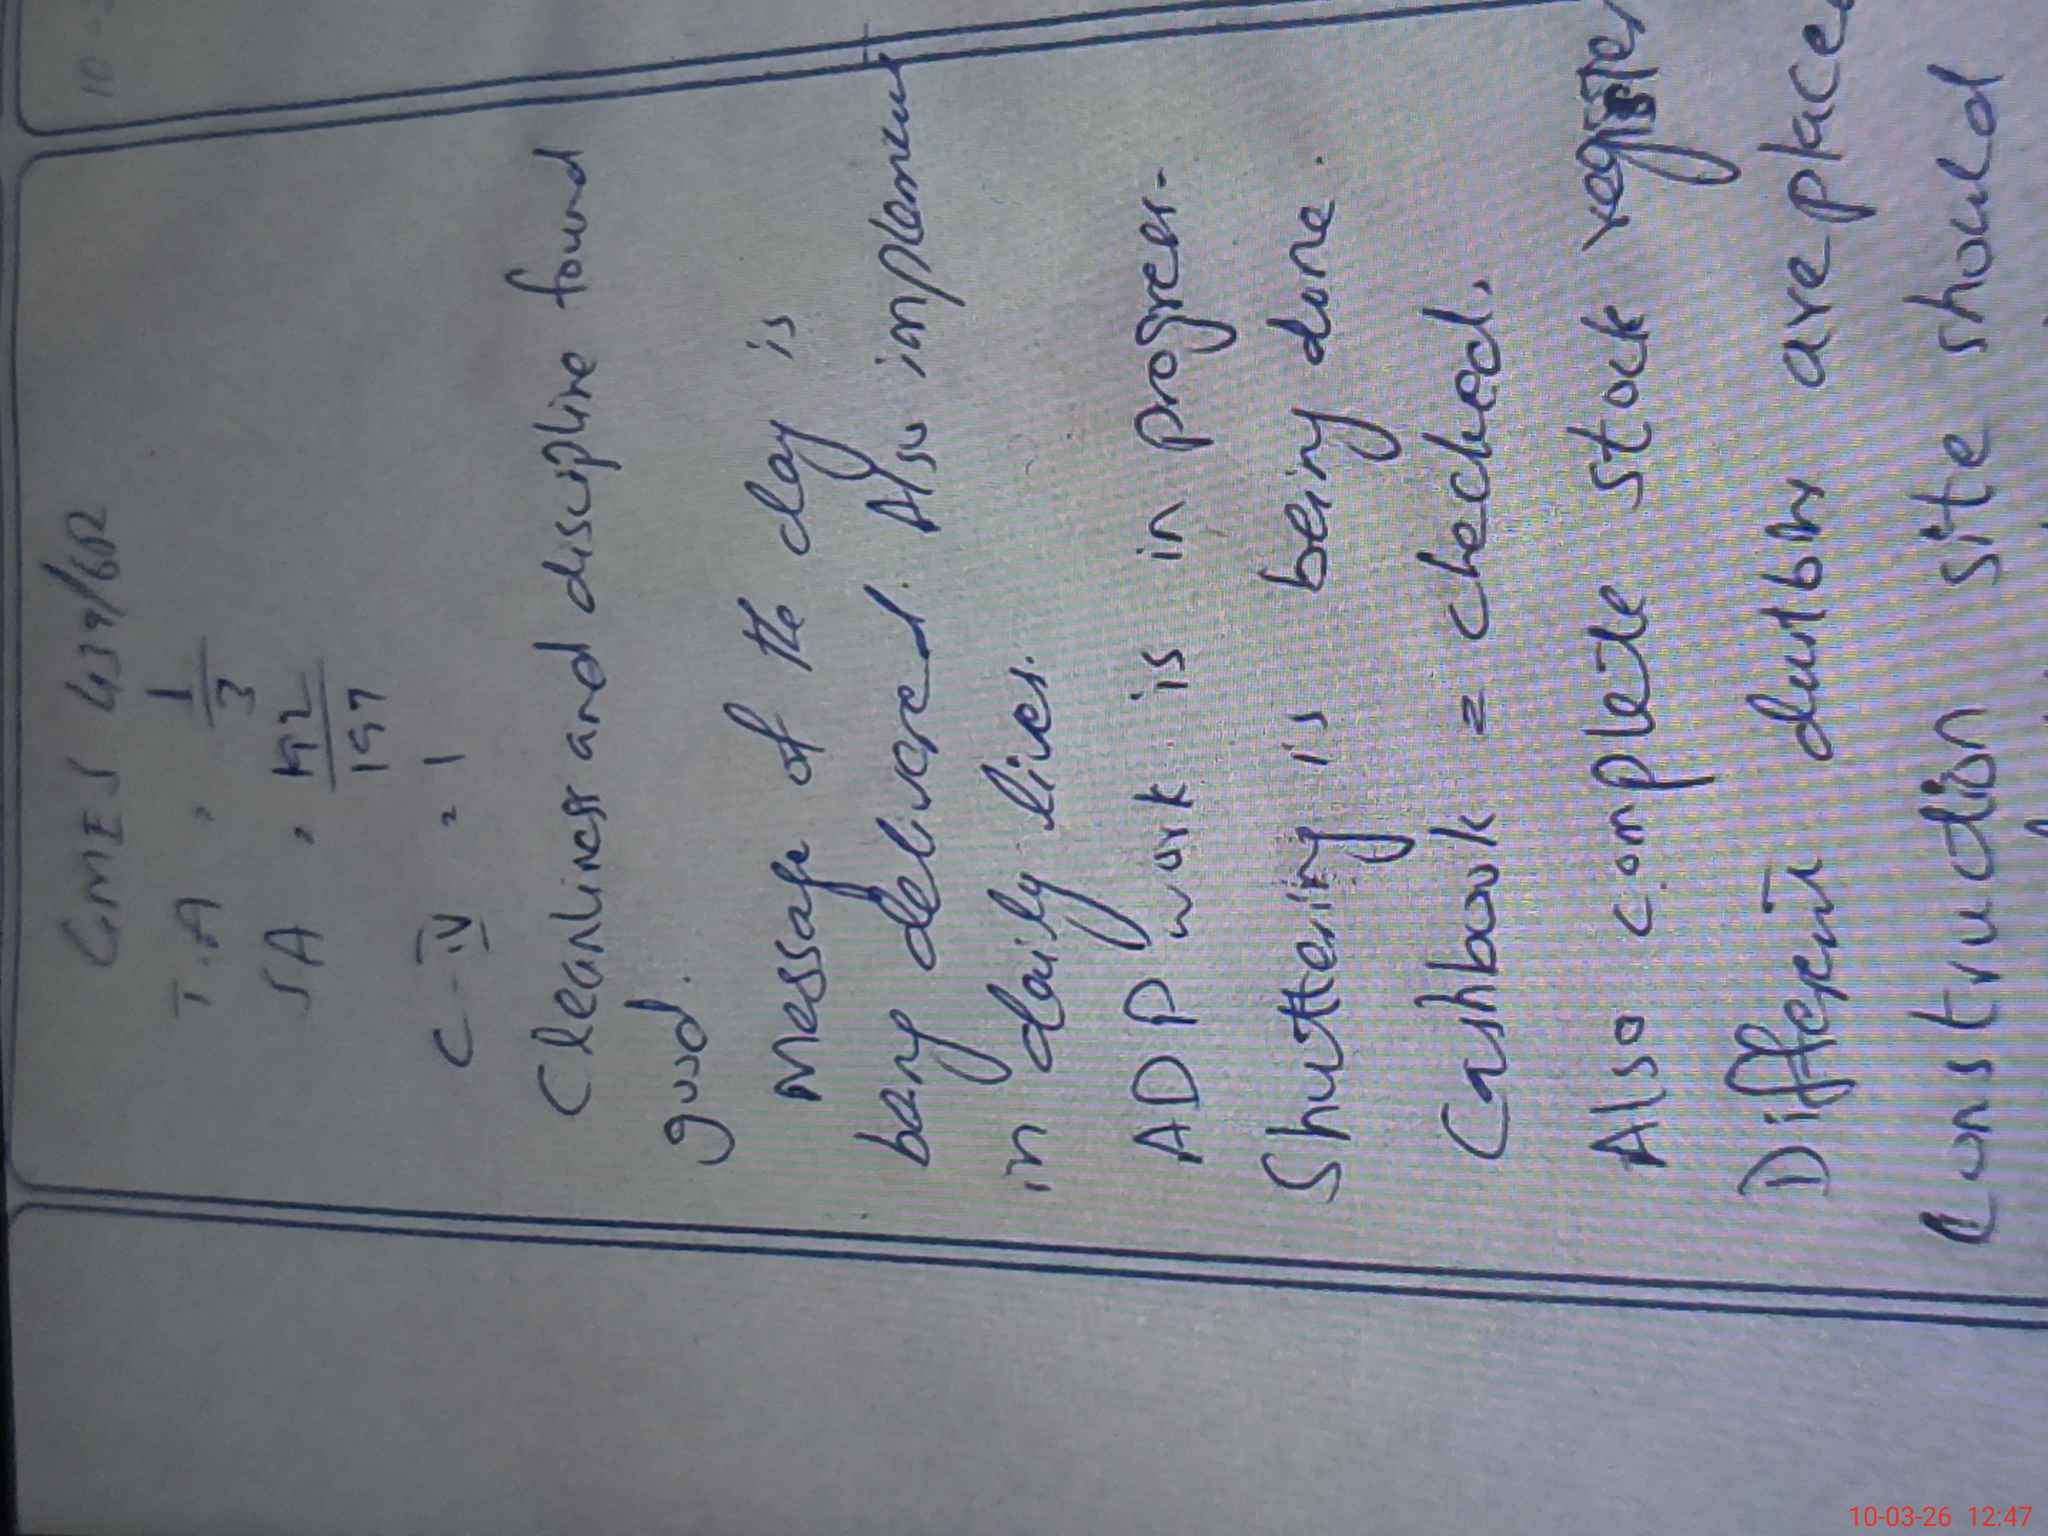 GMES 439/6R
T.A = 1/3
SA = 192/197
C-IV = 1
Cleanliness and discipline found
good.
Message of the day is
bang delivered. Also implement
in daily lives.
ADP work is in progress.
Shuttering is being done.
Cashbook = checked.
Also complete stock register
Different dustbin are place
Construction site should
10-03-26 12:47